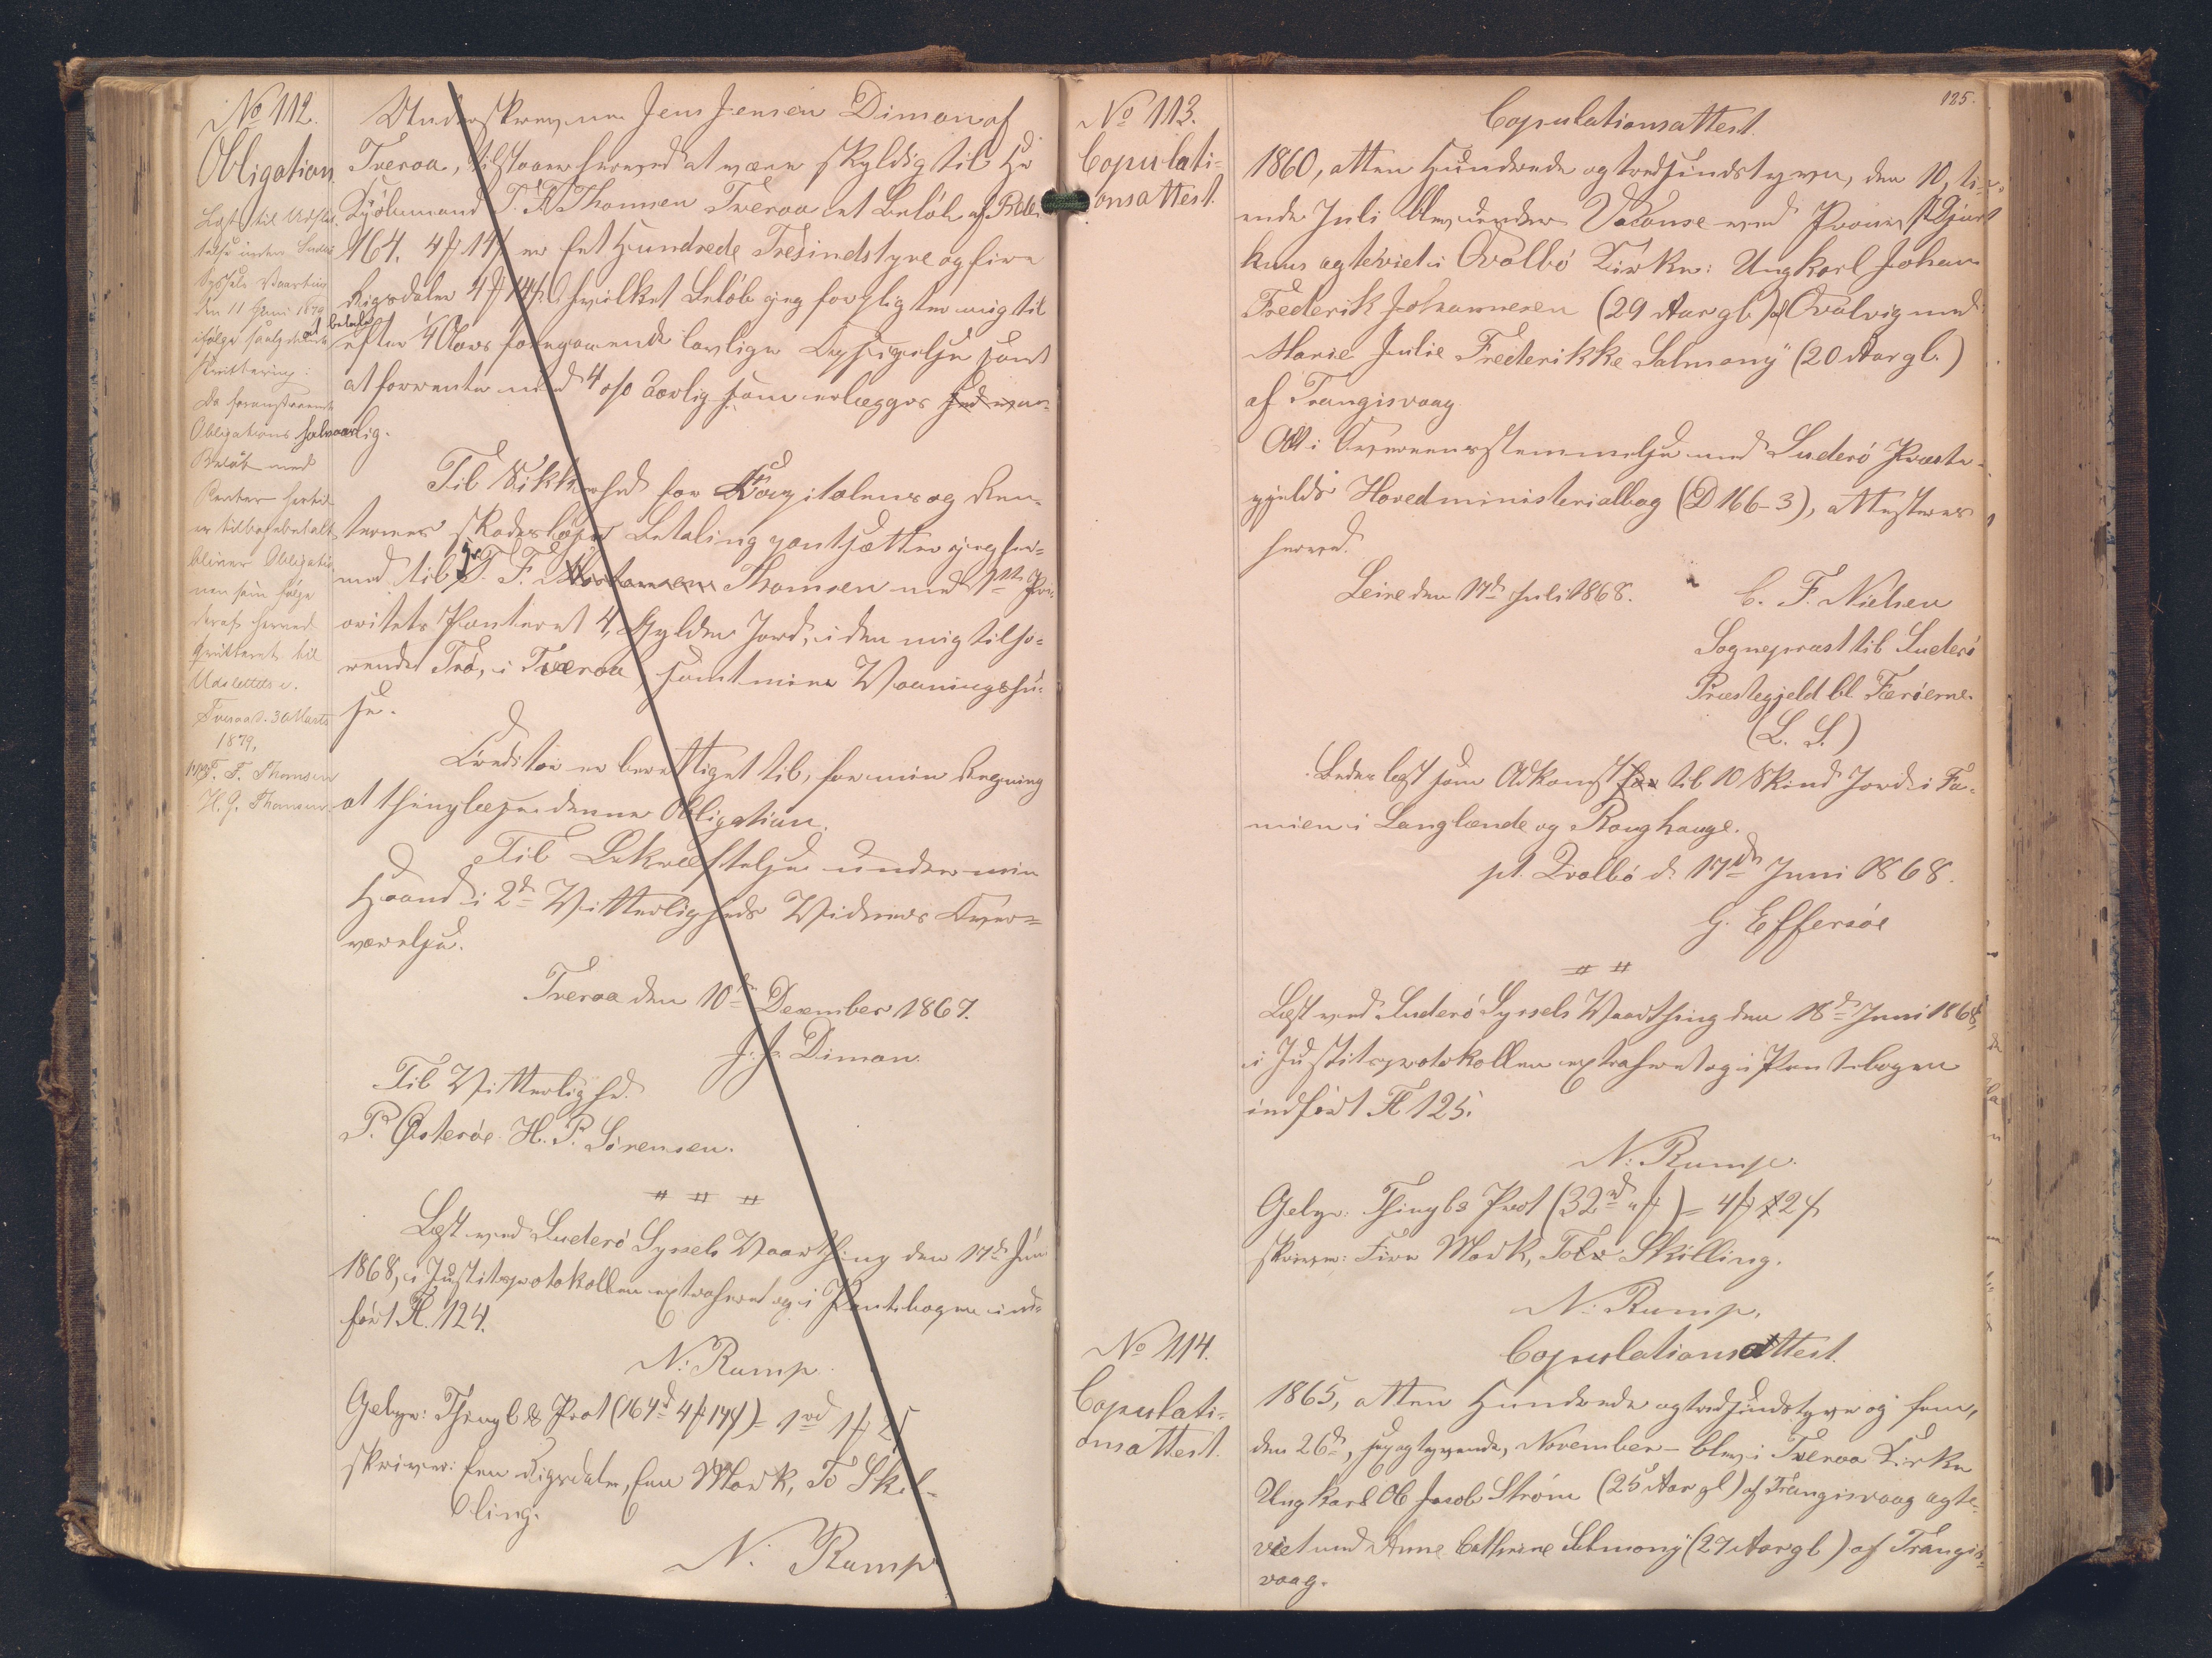 No 112.
Obligation
Læst til Udslet-
telse inden Suderø
Syssels Vaarting
den 11 Juni 1879
ifølge saalydende
Kvittering:
Da foranstaaende
Obligations
Beløb med
Renter hertil
er tilbagebetalt
bliver Obligatio-
nen som følge
deraf herved
qvitteret til
Udslettelse.
Tveraa d. 30 Marts
1879,
T. F. Thomsen
H. J. Thomsen
Underskrevne Jens Jensen Dimon af
Tveraa, tilstaaer herved at være skyldig til Hr
Kjøbmand T. F. Thomsen Tveraa et Beløb af Rdlr
164. 4 ꝑ 14 ß er Eet Hundrede Tresindstyve og fire
Rigsdaler 4 ꝑ 14 ß hvilket Beløb jeg forpligter mig til
at betale
efter 4 Uors foregaaende lovlige Opsigelse samt
at forrente med 4 o/o aarlig som erlægges
halvaarlig.
Til Sikkerhed for Kapitalens og Ren-
ternes skadesløse Betaling pantsætter jeg her-
med til T. F. Mortensen Thomsen med 1ste Pri-
oritets Panteret 4, Gylden Jord, i den mig tilhø-
rende Trø, i Tveraa, samt mine Vaaningshu-
se.
Creditor er berettiget til, for min Regning
at thinglæse denne Obligation.
Til Bekræftelse under min
Haand i 2de Vitterligheds Vidners Over-
værelse.
Tveraa den 10de December 1867.
J. J. Dimon.
Til Vitterlighed.
P. Østerøe H. P. Sørensen.
# # #
Læst ved Suderø Syssels Vaarthing den 17de Juni
1868, i Justitsprotokollen extraheret og i Pantebogen ind-
ført Fl. 124.
N. Rump.
Gebyr: Thingl & Prot (164rd 4 ꝑ 14 ß) = 1 rd 1 ꝑ 2 ß
skriver: Een Rigsdaler, Een Mark, To Skil-
ling.
N. Rump
125.
No 113.
Copulati-
onsattest.
Copulationsattest.
1860, atten Hundrede og tredsindstyve, den 10, ti-
ende Juli blev under Vacance ved Provst Djur-
huus ægteviet i Qvalbø Kirke: Ungkarl Johan
Frederik Johannesen (29 Aar gl.) af Qvalvig med
Marie Julie Frederikke Salmony (20 Aar gl.)
af Trangisvaag
Alt i Overeensstemmelse med Suderø Præste-
gjelds Hovedministerialbog (D 166-3), attesteres
herved.
Leire den 17de Juli 1868.
C. F. Nielsen
Sognepræst til Suderø
Præstegjeld bl Færøerne.
(L. S.)
Bedes læst som Adkomst for til 10 Skind Jord i Fa-
mien i Langlænde og Roughauge.
pt. Qvalbø d. 17de Juni 1868.
G. Effersøe
# #
Læst ved Suderø Syssels Vaarthing den 18de Juni 1868,
i Justitsprotokollen extraheret og i Pantebogen
indført Fl 125.
N. Rump.
Gebyr: Thingl & Prot (32rd " ꝑ) = 4 ꝑ 12 ß
skriver: Fire Mark, Tolv Skilling.
N. Rump.
No 114.
Copulati-
onsattest.
Copulationsattest.
1865, atten Hundrede og tredsindstyve og fem,
den 26de, sexogtyvende, November - blev i Tveraa Kirke
Ungkarl Ole Jacob Strøm (25 Aar gl) af Trangisvaag ægte-
viet med Anne Cathrine Salmony (27 Aar gl) af Trangis-
vaag.